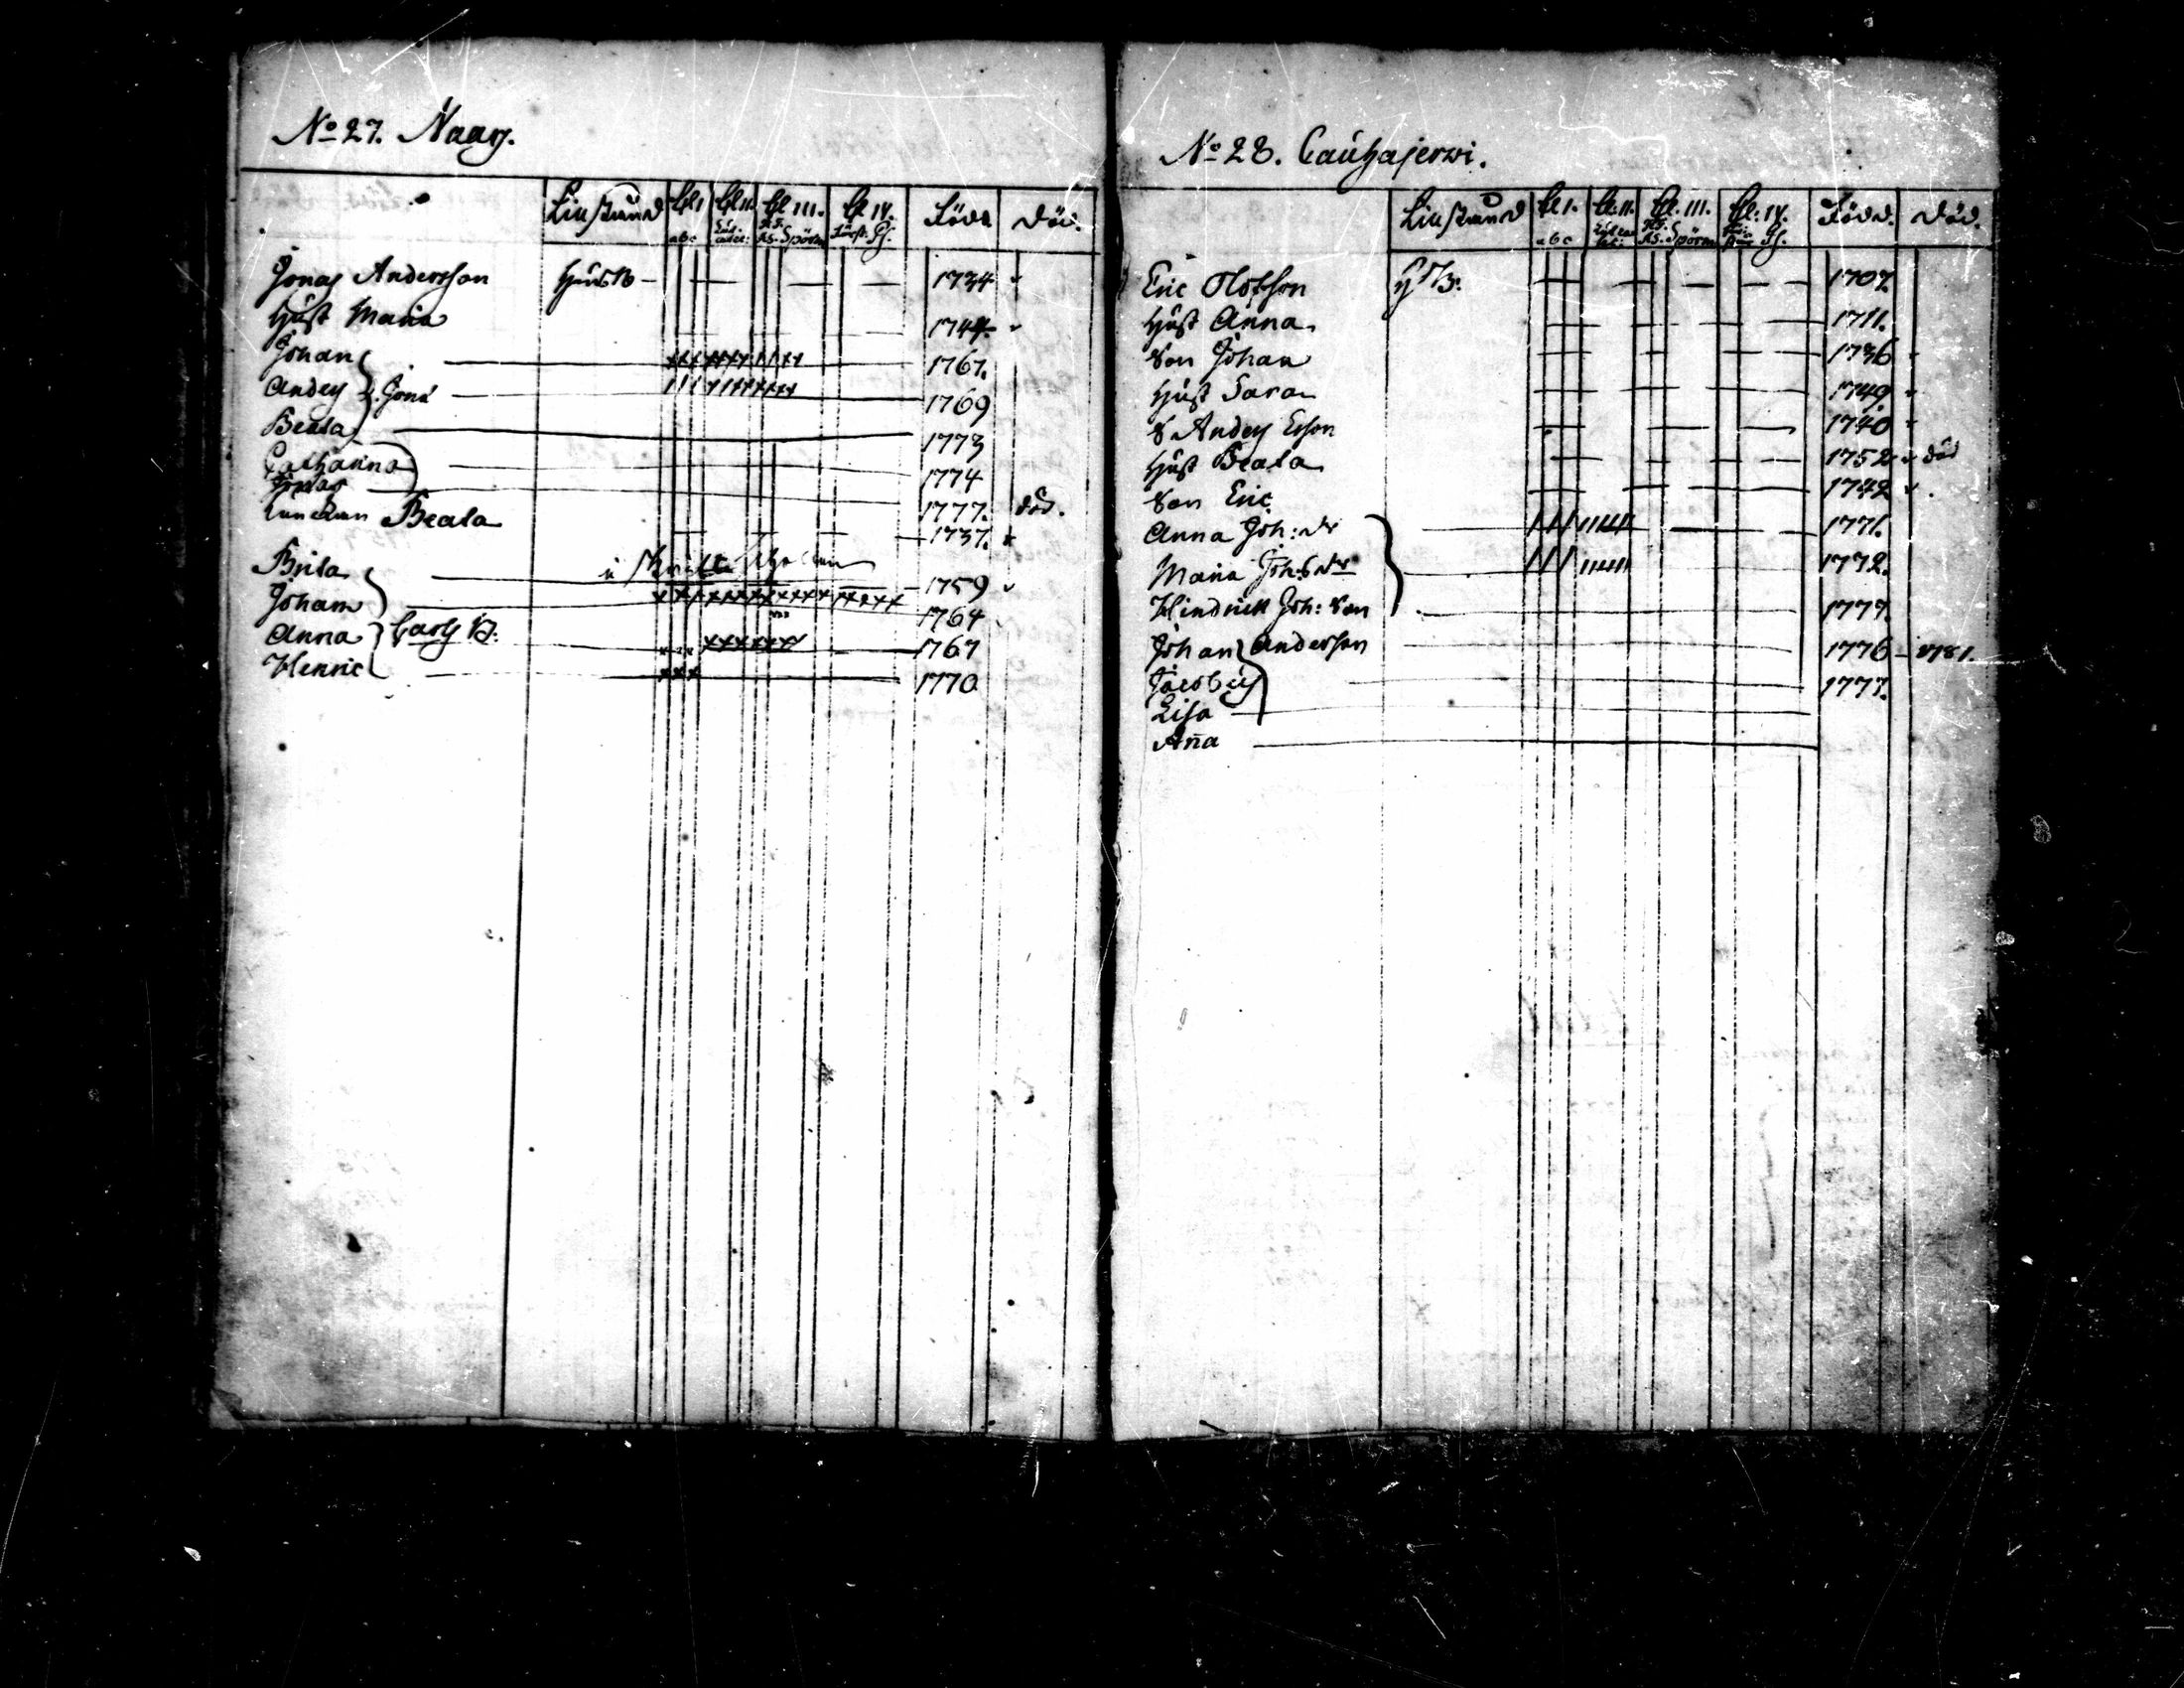 No 27. Naarj.
Cl I Cl II. Cl III. Cl IV. Född Död.
abc Spörsm
Jonas Andersson 1734
Hust Maria 1744.
Johan 1767.
Anders Jonæ 1769
Beata 1773
Catharina 1774
Jonas 1777. död.
Enckan Beata 1737.
Brita 1759
Johan 1764
Anna Carls 1767
Henric 1770
No 28. Cauhajerwi.
Cl I. Cl. II. Cl. III. Cl. IV. Född. Död.
abc Spörsm
Eric Olofson 1707
Hust Anna 1711.
Son Johan 1736
Hust Sara 1749
S Anders Erson 1740
Hust Beata 1752 död
Son Eric 1742
Anna Joh: dr 1771.
Maria Joh: dr 1772.
Hindrick Joh: Son 1777.
Johan Anderson 1776 - 1781.
Jacob 1777.
Lisa
Aña